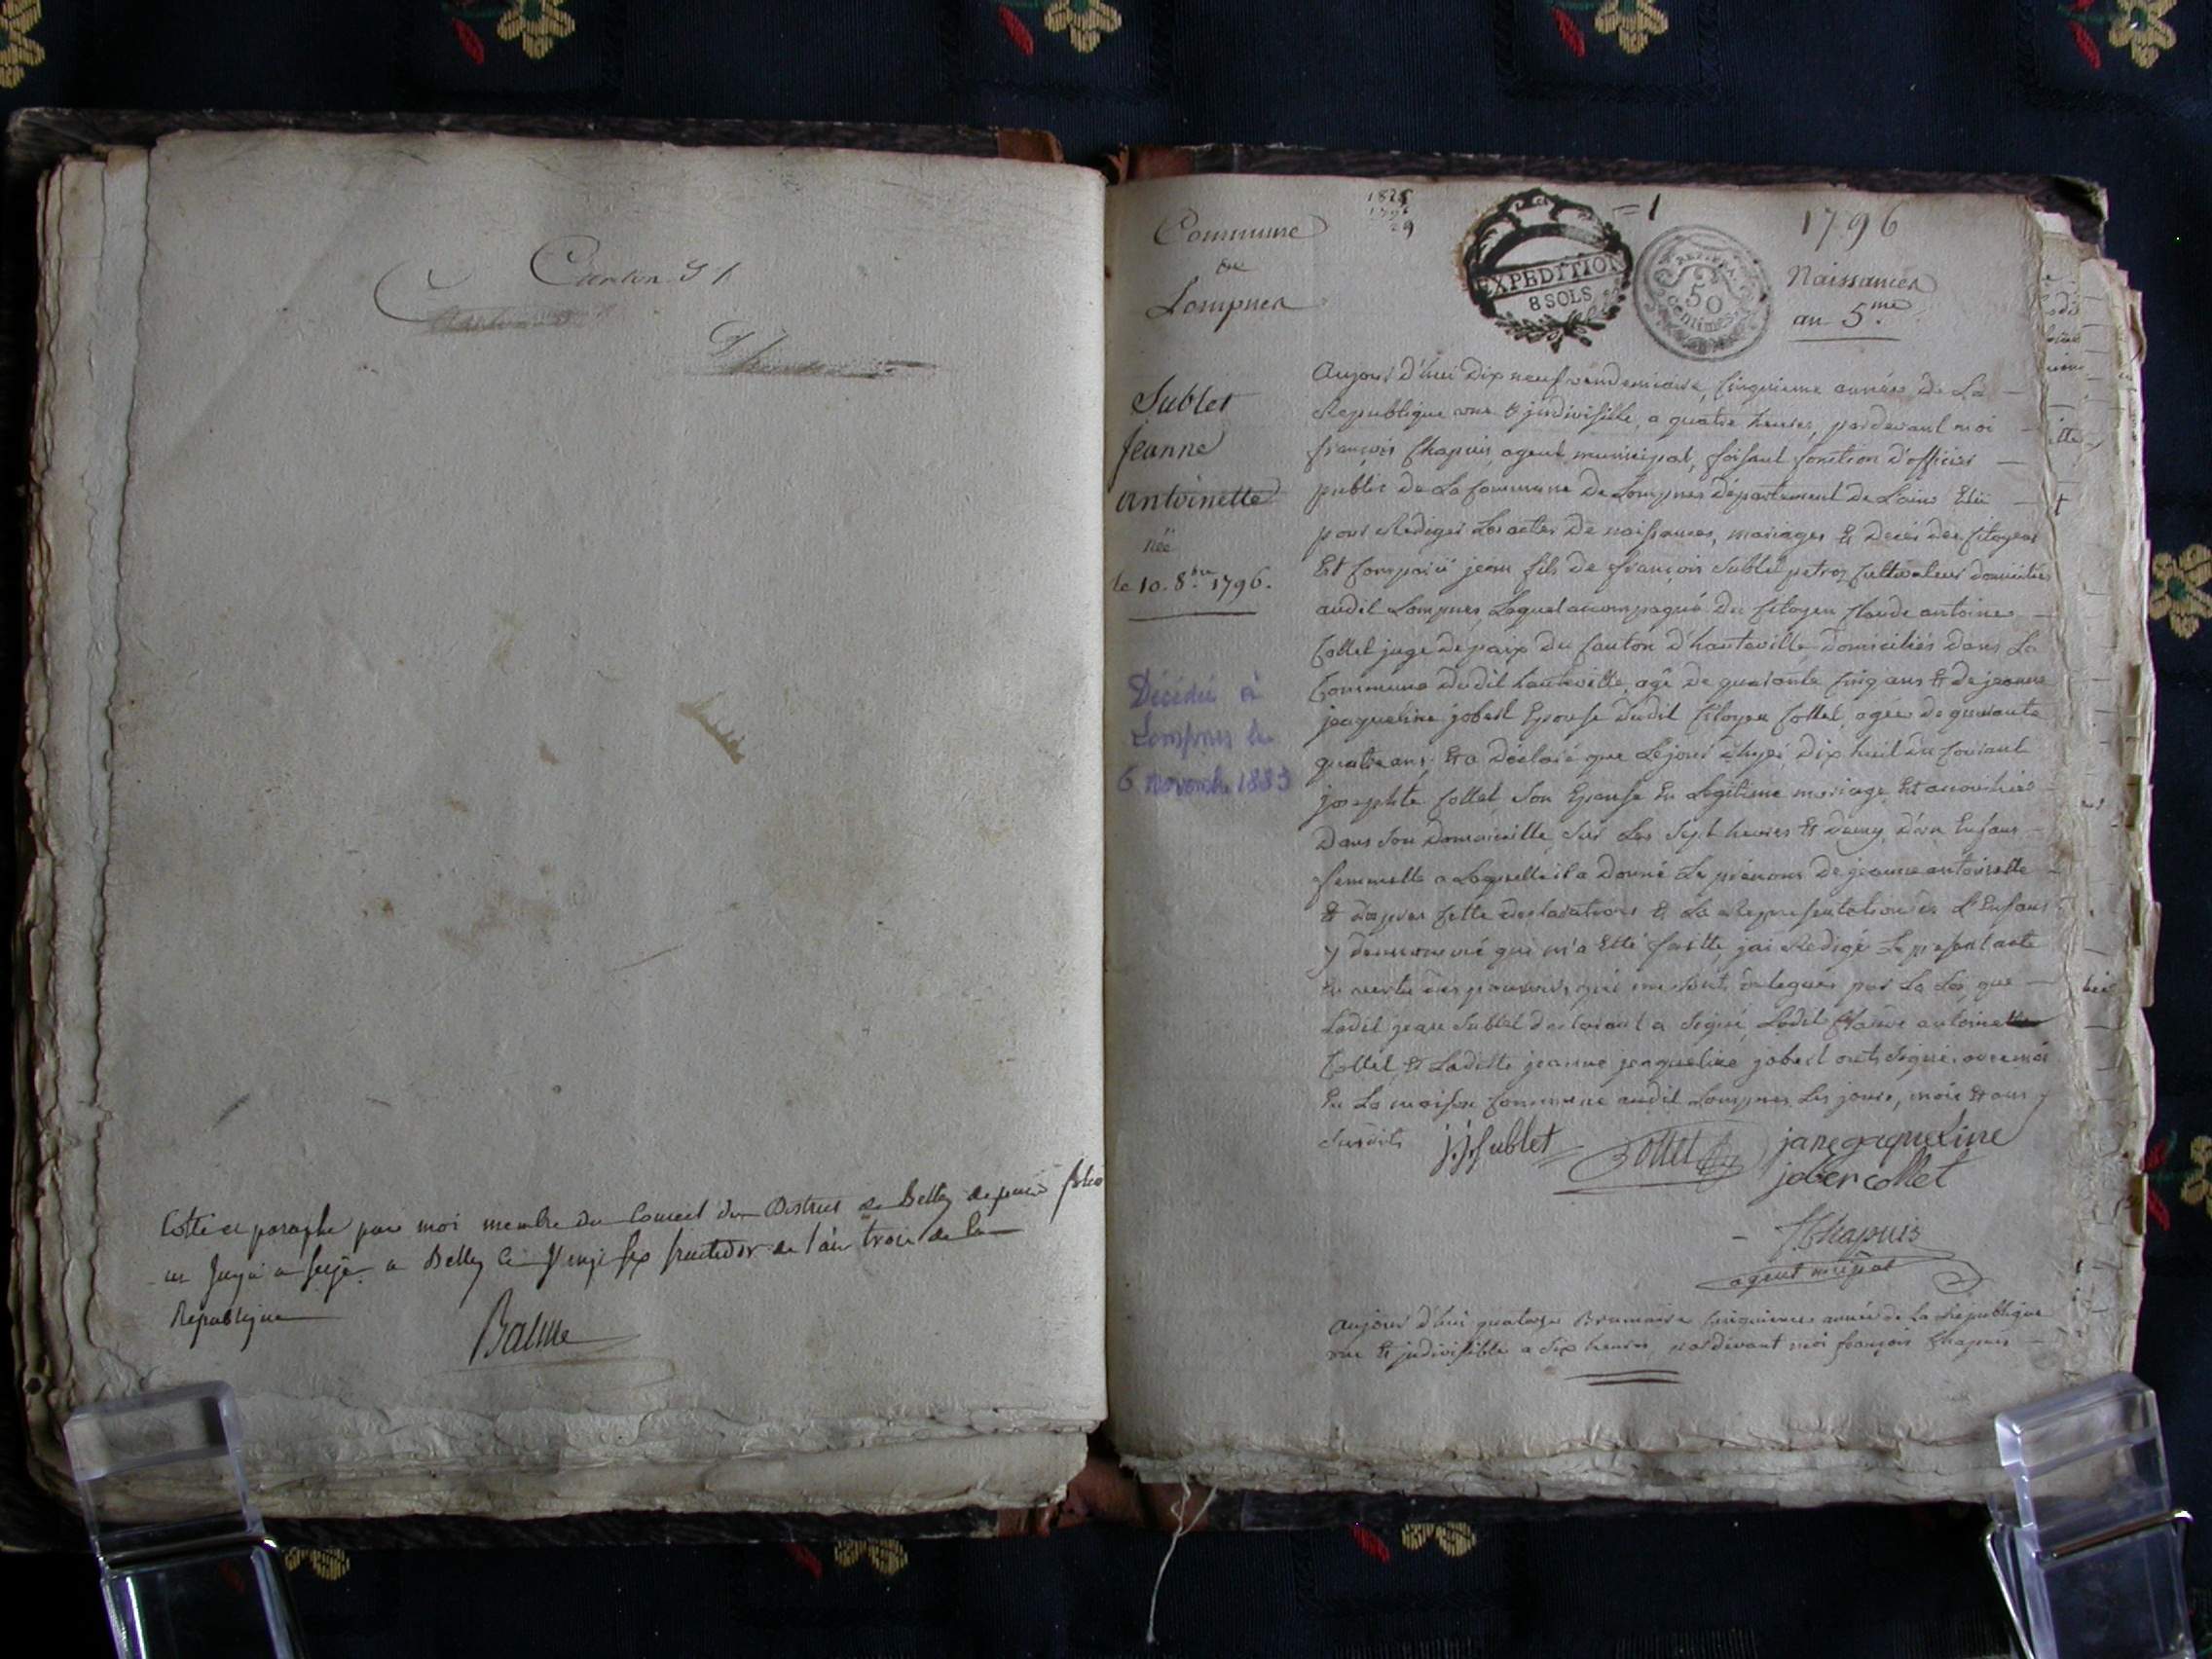 Canton
Cotté et paraphé par moi membre du Conseil du District de Belley depuis folio
un jusqu'a seize a Belley le vingt six fructidor de l'an trois de la
République
Balme
Commune
de
Lompnes
1825
1796
29
EXPEDITION
8 SOLS
=1
50
Centimes
1796
Naissances
an 5.me
Sublet
Jeanne
Antoinette
née
le 10. 8.bre 1796.
Décédée à
Lompnes le
6 novembre 1883
Aujourd'hui dix neuf vendemiaire, cinquieme année de La
Republique une & indivisible, a quatre heures, pardevant moi
françois Chapuis, agent municipal, faisant fonction d'officier
public de La Commune de Lompnes département de L'ain Elu
pour Rediger Les actes de naissances, mariages & decès des citoyens
Est Comparu jean fils de françois Sublet petroz Cultivateur domicilié
audit Lompnes, Lequel accompagné du Citoyen Claude antoine
Collet juge de paix du Canton d'hauteville domicilié dans La
Commune dudit hauteville, agé de quarante Cinq ans & de jeanne
jeaqueline jobert Epouse dudit Citoyen Collet, agée de quarante
quatre ans, Et a déclaré que Le jour d'hyer, dix huit du Courant
josephte Collet Son Epouse En Legitime mariage Est accouchée
Dans Son Domicille Sur Les Sept heures & demy d'un Enfant
femmelle a Laquelle il a donné Le prénoms de jeanne antoinette
& d'apres Cette declarations & La Representation de L'Enfant
y dennommé qui m'a Etté faitte, jai Redigé Le present acte
En vertu des pouvoirs qui me sont delegués par La Loi, que
Ledit jean Sublet declarant a Signé, Ledit Claude antoine
Collet, & Laditte jeanne jeaqueline jobert onts Signé avec moi
En La maison Commune audit Lompnes Les jours, mois & ans
Susdits j.j. Sublet Collet jane gaqueline
jober collet
f. Chapuis
agent mupal
Aujourd'hui quatorze Brumaire Cinquieme année de La Republique
une & indivisible a dix heures pardevant moi françois Chapuis